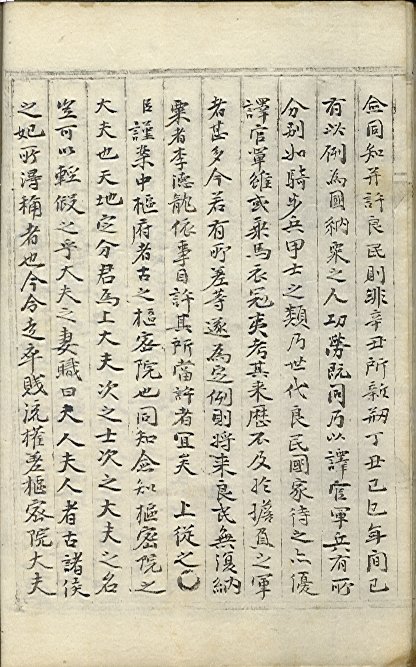 僉同知并許良民則雖辛丑所新刱丁丑己巳年間已
有以例為國納粟之人功勞旣同乃以譯官軍兵有所
分別如騎步兵甲士之類乃世代良民國家待之亦優
譯官輩雖或乘馬衣冠夷考其來歷不及於擔負之軍
者甚多今若有所差等遂為定例則將來良民無復納
粟者李德龍依事目許其所當許者宜矣 上從之○
臣謹案中樞府者古之樞密院也同知僉知樞密院之
大夫也天地定分君為上大夫次之士次之大夫之名
豈可以輕假之乎大夫之妻職曰夫人夫人者古諸侯
之妃所得稱者也今令走卒賤流權差樞密院大夫